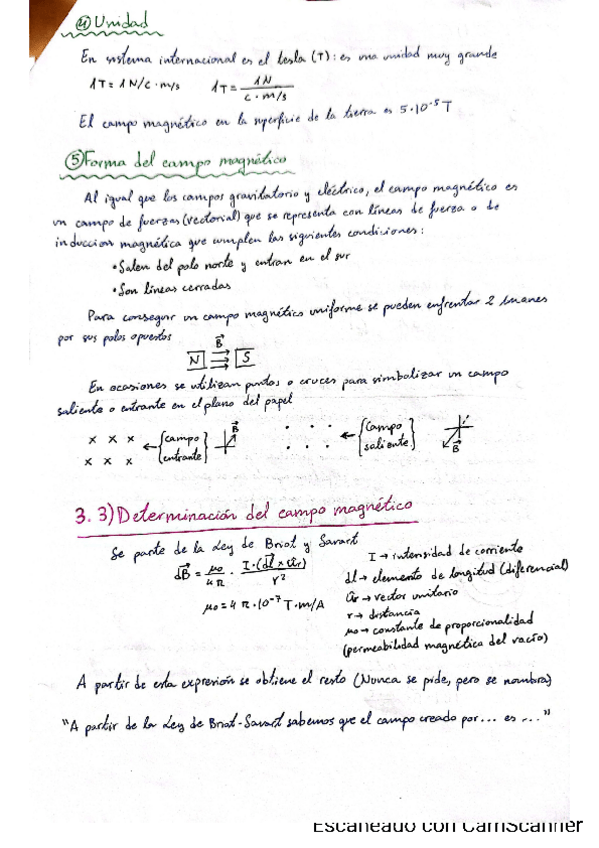 ④ Unidad
En sistema internacional es el tesla (T): es una unidad muy grande
1T = 1N/C·m/s    1T = 1N / C·m/s
El campo magnético en la superficie de la tierra es 5·10⁻⁵ T
⑤ Forma del campo magnético
Al igual que los campos gravitatorio y eléctrico, el campo magnético es
un campo de fuerzas (vectorial) que se representa con líneas de fuerza o de
induccion magnética que cumplen las siguientes condiciones:
• Salen del polo norte y entran en el sur
• Son líneas cerradas
Para conseguir un campo magnético uniforme se pueden enfrentar 2 imanes
por sus polos opuestos
B⃗
N S
En ocasiones se utilizan puntos o cruces para simbolizar un campo
saliente o entrante en el plano del papel
x x x ← {campo entrante} B⃗ · · · ← {Campo saliente} B⃗
x x x · · ·
3.3) Determinación del campo magnético
Se parte de la Ley de Briot y Savart
dB⃗ = μo/4π · I·(dl⃗ x ûr)/r²
μo = 4π·10⁻⁷ T·m/A
I → intensidad de corriente
dl → elemento de longitud (diferencial)
ûr → vector unitario
r → distancia
μo → constante de proporcionalidad
(permeabilidad magnética del vacío)
A partir de esta expresión se obtiene el resto (Nunca se pide, pero se nombra)
"A partir de la Ley de Briot-Savart sabemos que el campo creado por... es ..."
Escaneado con CamScanner